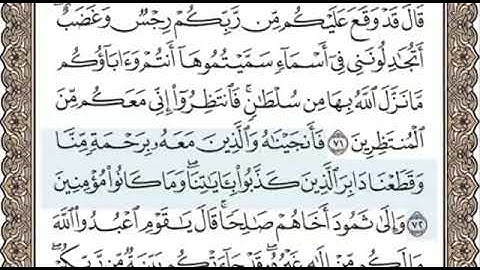 قَالَ قَدْ وَقَعَ عَلَيْكُم مِّن رَّبِّكُمْ رِجْسٌ وَغَضَبٌ ۖ
أَتُجَٰدِلُونَنِي فِيٓ أَسْمَآءٍ سَمَّيْتُمُوهَآ أَنتُمْ وَءَابَآؤُكُم
مَّا نَزَّلَ ٱللَّهُ بِهَا مِن سُلْطَٰنٍ ۚ فَٱنتَظِرُوٓا۟ إِنِّي مَعَكُم مِّنَ
ٱلْمُنتَظِرِينَ ٧١ فَأَنجَيْنَٰهُ وَٱلَّذِينَ مَعَهُۥ بِرَحْمَةٍ مِّنَّا
وَقَطَعْنَا دَابِرَ ٱلَّذِينَ كَذَّبُوا۟ بِـَٔايَٰتِنَا ۖ وَمَا كَانُوا۟ مُؤْمِنِينَ
٧٢ وَإِلَىٰ ثَمُودَ أَخَاهُمْ صَٰلِحًا ۗ قَالَ يَٰقَوْمِ ٱعْبُدُوا۟ ٱللَّهَ
مَا لَكُم مِّنْ إِلَٰهٍ غَيْرُهُۥ ۖ قَدْ جَآءَتْكُم بَيِّنَةٌ مِّن رَّبِّكُمْ ۖ